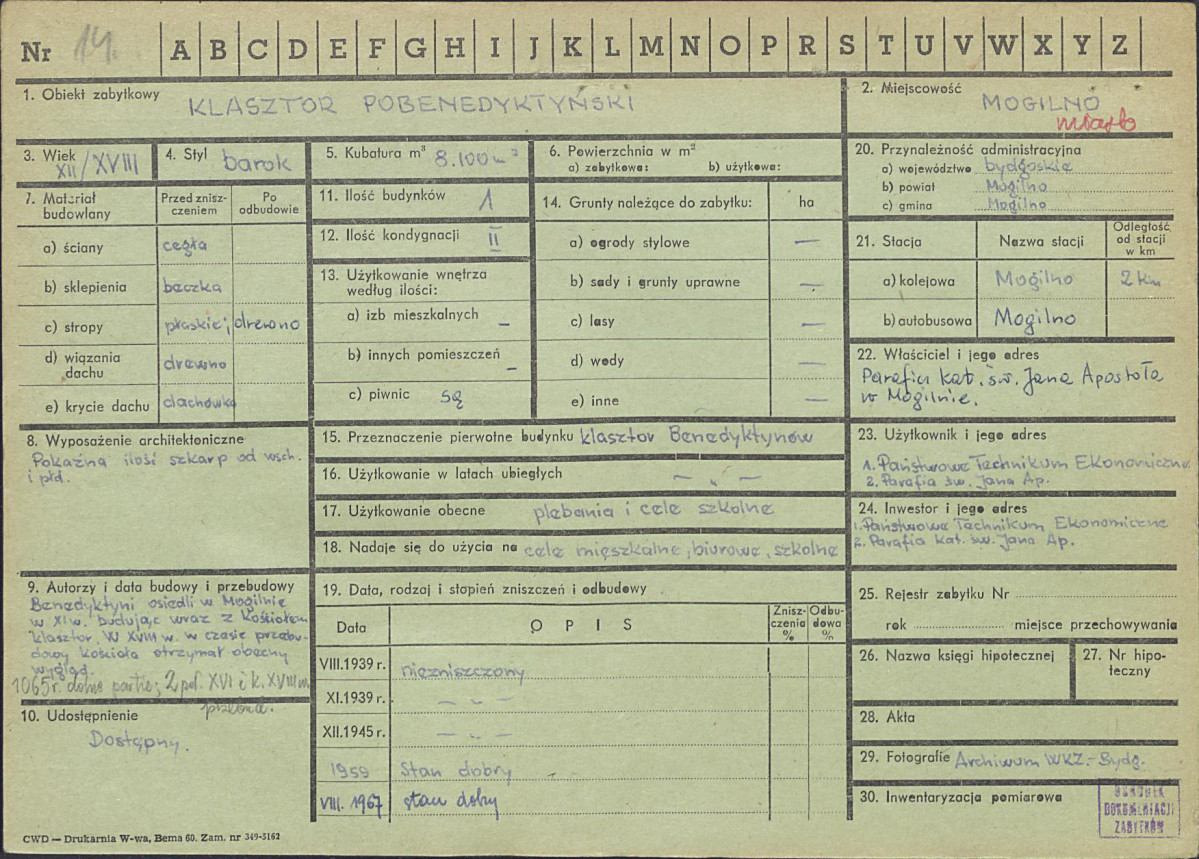 Nr 14. A B C D E F G H I J K L M N O P R S T U V W X Y Z
1. Obiekt zabytkowy KLASZTOR POBENEDYKTYŃSKI
2. Miejscowość MOGILNO
miasto
3. Wiek XII/XVIII
4. Styl barok
5. Kubatura m³ 8.100 m³
6. Powierzchnia w m²
a) zabytkowa: b) użytkowa:
7. Materiał budowlany
Przed zniszczeniem
Po odbudowie
a) ściany cegła
b) sklepienia beczka
c) stropy płaskie; drewno
d) wiązania dachu drewno
e) krycie dachu dachówka
8. Wyposażenie architektoniczne
Pokaźna ilość szkarp od wsch.
i płd.
9. Autorzy i data budowy i przebudowy
Benedyktyni osiedli w Mogilnie
w XI w. budując wraz z kościołem
klasztor. W XVIII w. w czasie przebu-
dowy kościoła otrzymał obecny
wygląd.
1065 r. dolne partie; 2 poł. XVI i k. XVIII w.
10. Udostępnienie
Dostępny.
11. Ilość budynków 1
12. Ilość kondygnacji II
13. Użytkowanie wnętrza
według ilości:
a) izb mieszkalnych –
b) innych pomieszczeń –
c) piwnic są
14. Grunty należące do zabytku: ha
a) ogrody stylowe —
b) sady i grunty uprawne —
c) lasy —
d) wody —
e) inne —
15. Przeznaczenie pierwotne budynku klasztor Benedyktynów
16. Użytkowanie w latach ubiegłych — „ —
17. Użytkowanie obecne plebania i cele szkolne
18. Nadaje się do użycia na cele mieszkalne, biurowe, szkolne
19. Data, rodzaj i stopień zniszczeń i odbudowy
Data
O P I S
Znisz-
czenia
%
Odbu-
dowa
%
VIII.1939 r. niezniszczony
XI.1939 r. — „ —
XII.1945 r. — „ —
1959 Stan dobry
VIII. 1967 stan dobry
20. Przynależność administracyjna
a) województwo bydgoskie
b) powiat Mogilno
c) gmina Mogilno
21. Stacja
Nazwa stacji
Odległość
od stacji
w km
a) kolejowa Mogilno 2 km
b) autobusowa Mogilno
22. Właściciel i jego adres
Parafia kat. św. Jana Apostoła
w Mogilnie.
23. Użytkownik i jego adres
1. Państwowe Technikum Ekonomiczne
2. Parafia św. Jana Ap.
24. Inwestor i jego adres
1. Państwowe Technikum Ekonomiczne
2. Parafia kat. św. Jana Ap.
25. Rejestr zabytku Nr
rok miejsce przechowywania
26. Nazwa księgi hipotecznej
27. Nr hipo-
teczny
28. Akta
29. Fotografie Archiwum WKZ.-Bydg.
30. Inwentaryzacja pomiarowa
OŚRODEK
DOKUMENTACJI
ZABYTKÓW
CWD — Drukarnia W-wa, Bema 60. Zam. nr 349-5162